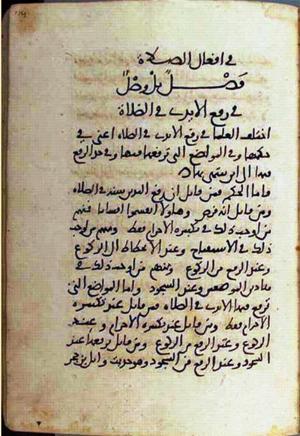 في افعال الصلاة
فصل بل وصل
في رفع الايدي في الصلاة
اختلف العلما في رفع الايدي في الصلاة اعني في
حكمها وفي المواضع التي ترفع فيها وفي حد الرفع
فيها الى اين ينتهي بها
فاما الحكم فمن قايل ان رفع اليدين سنة في الصلاة
ومن قايل انه فرض وهاولا انقسموا اقساما فمنهم
من اوجب ذلك في تكبيرة الاحرام فقط ومنهم من اوجب
ذلك في الاستفتاح وعند الانحطاط الى الركوع
وعند الرفع من الركوع ومنهم من اوجب ذلك في
هاذين الموضعين وعند السجود واما المواضع التي
ترفع فيها الايدي في الصلاة فمن قايل عند تكبيرة
الاحرام فقط ومن قايل عند تكبيرة الاحرام وعند
الركوع وعند الرفع من الركوع ومن قايل يرفعها عند
السجود وعند الرفع من السجود وهو حديث وايل بن حجر